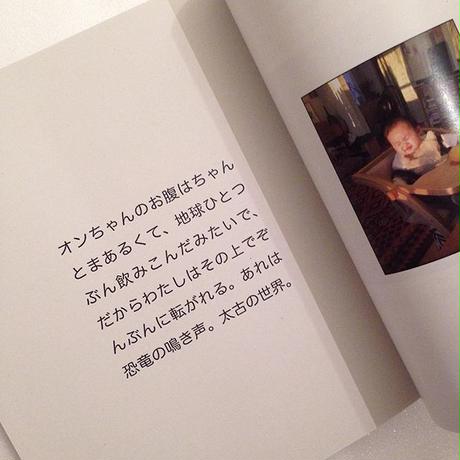 オンちゃんのお腹はちゃん
とまあるくて、地球ひとつ
ぶん飲みこんだみたいで、
だからわたしはその上でぞ
んぶんに転がれる。あれは
恐竜の鳴き声。太古の世界。